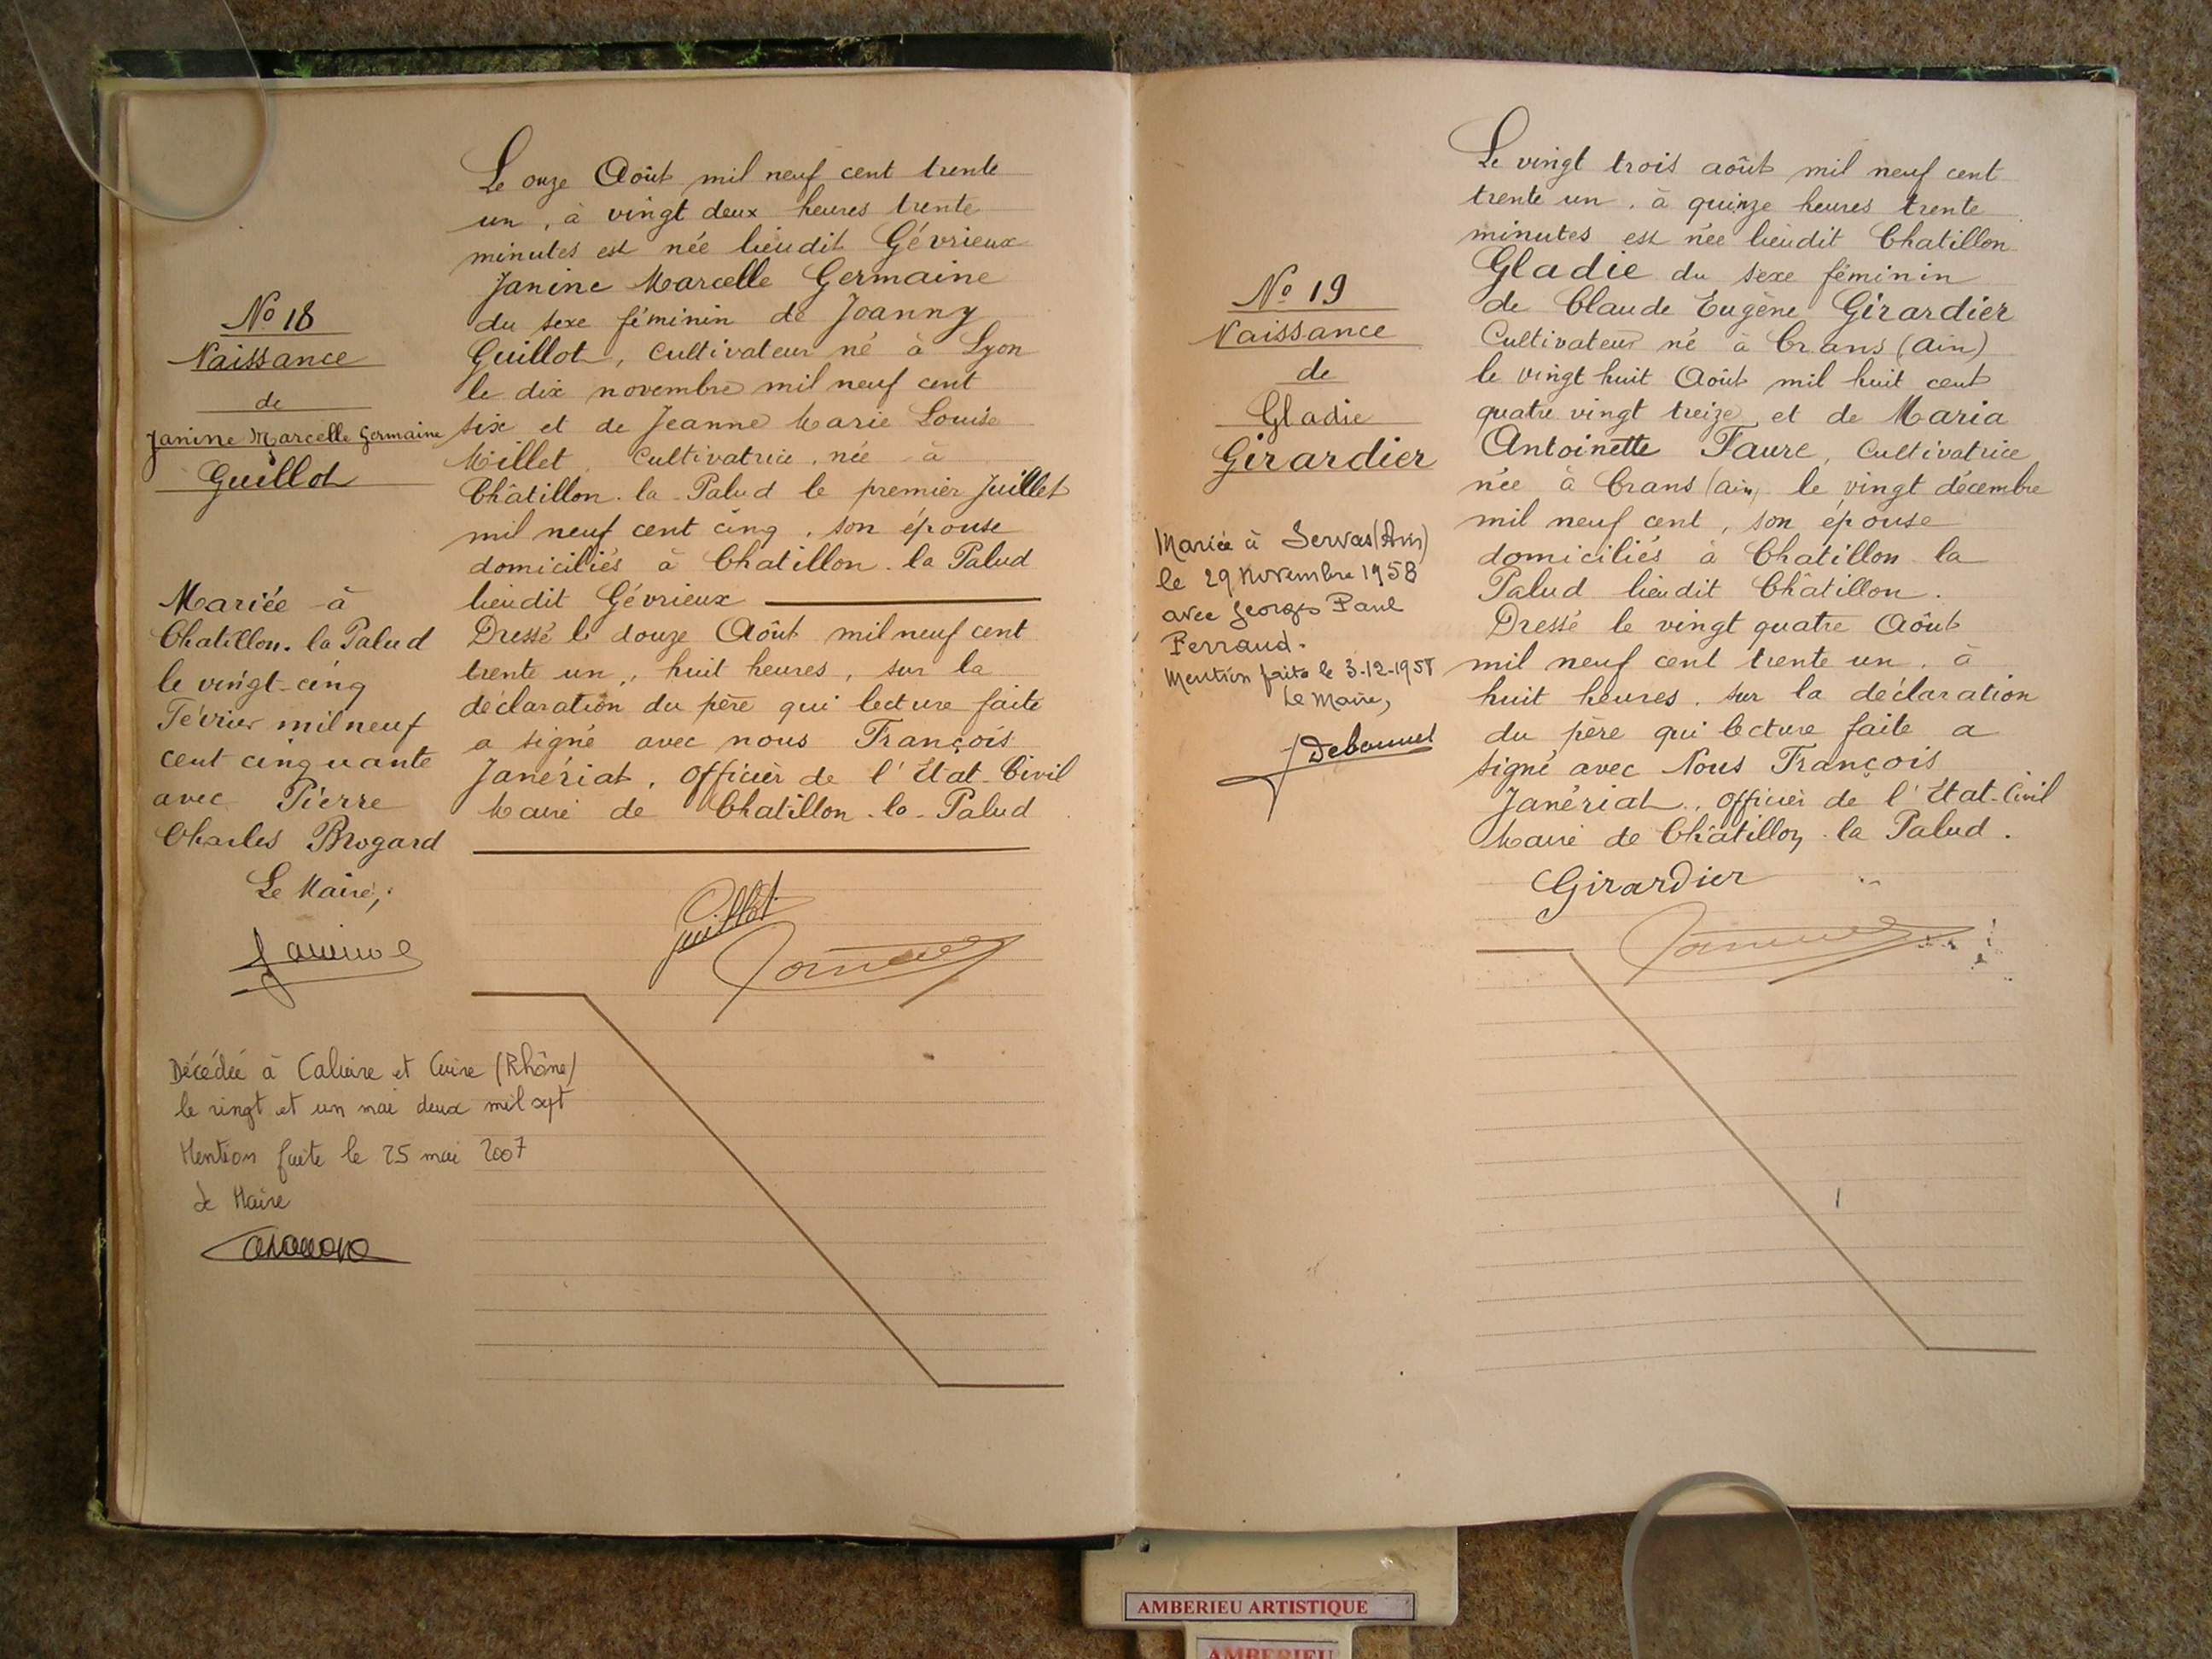 No 18
Naissance
de
Janine Marcelle Germaine
Guillot
Mariée à
Chatillon. la Palud
le vingt-cinq
Février mil neuf
cent cinquante
avec Pierre
Charles Brogard
Le Maire,
Décédée à Caluire et Cuire (Rhône)
le vingt et un mai deux mil sept
Mention faite le 25 mai 2007
Le Maire
Le onze Août mil neuf cent trente
un, à vingt deux heures trente
minutes est née lieudit Gévrieux
Janine Marcelle Germaine
du sexe féminin de Joanny
Guillot, Cultivateur né à Lyon
le dix novembre mil neuf cent
six et de Jeanne Marie Louise
Millet, Cultivatrice, née à
Châtillon. la Palud le premier Juillet
mil neuf cent cinq, son épouse
domiciliés à Chatillon. la Palud
lieudit Gévrieux
Dressé le douze Août mil neuf cent
trente un, huit heures, sur la
déclaration du père qui lecture faite
a signé avec nous François
Janériat, Officier de l'Etat-Civil
Maire de Chatillon-la-Palud
Guillot
No 19
Naissance
de
Gladie
Girardier
Mariée à Servas (Ain)
le 29 Novembre 1958
avec Georges Paul
Ferraud.
Mention faite le 3-12-1958
Le Maire,
Le vingt trois août mil neuf cent
trente un, à quinze heures trente
minutes est née lieudit Chatillon
Gladie du sexe féminin
de Claude Eugène Girardier
Cultivateur né à Crans (Ain)
le vingt huit Août mil huit cent
quatre vingt treize et de Maria
Antoinette Faure, Cultivatrice
née à Crans (Ain) le vingt décembre
mil neuf cent, son épouse
domiciliés à Chatillon la
Palud lieudit Châtillon.
Dressé le vingt quatre Août
mil neuf cent trente un, à
huit heures, sur la déclaration
du père qui lecture faite a
signé avec Nous François
Janériat, Officier de l'Etat-Civil
Maire de Châtillon-la Palud.
Girardier
AMBERIEU ARTISTIQUE
AMBERIEU